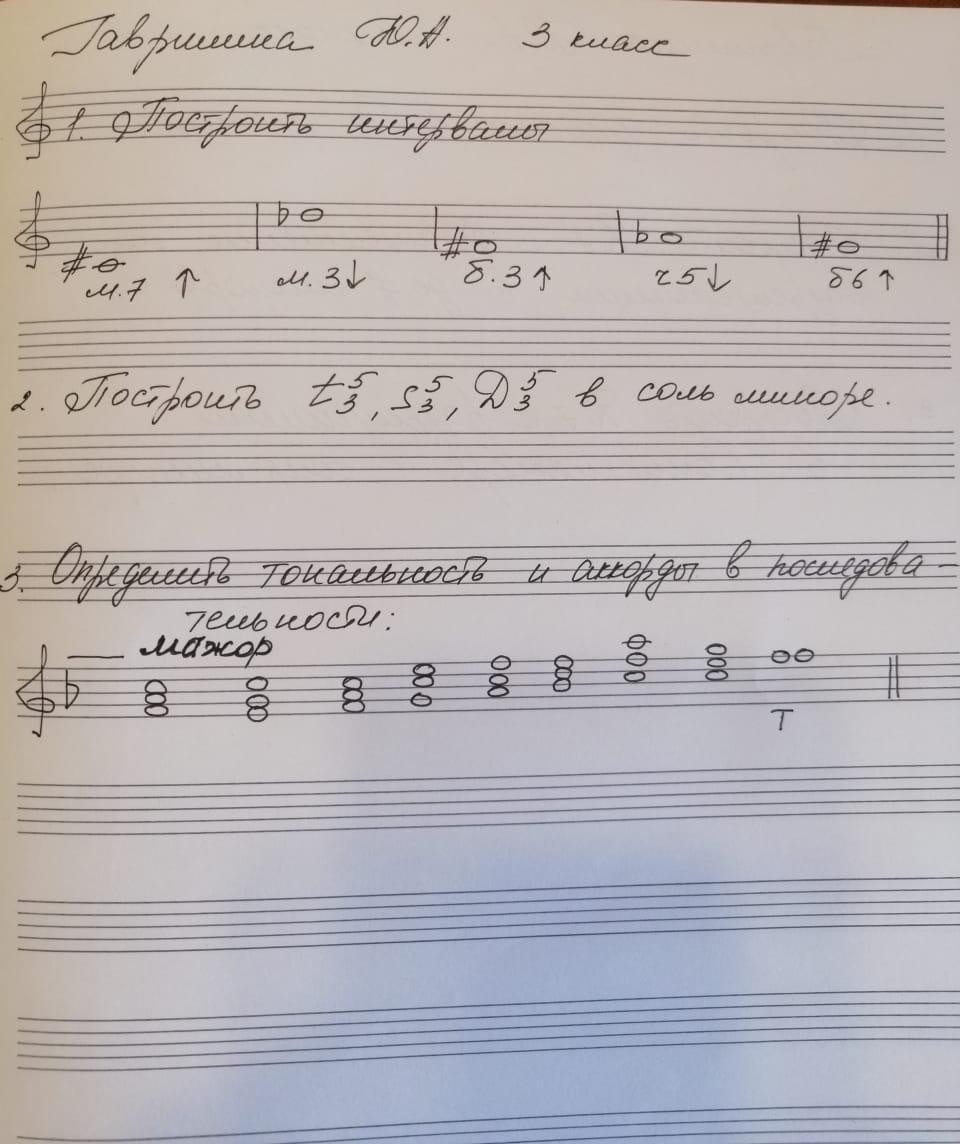 Гавришина Ю.А. 3 класс
1. Построить интервалы
м.7 ↑ м. 3↓ б. 3↑ ч5↓ б6↑
2. Построить t⁵₃, S⁵₃, D⁵₃ в соль миноре.
3. Определить тональность и аккорды в последова-
тельности:
___ мажор
T